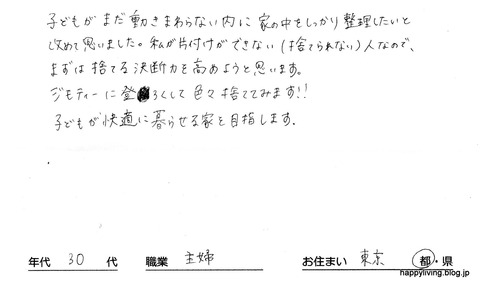 子どもがまだ動きまわらない内に家の中をしっかり整理したいと
改めて思いました。私が片付けができない(捨てられない)人なので、
まずは捨てる決断力を高めようと思います。
ジモティーに登ろくして色々捨ててみます!!
子どもが快適に暮らせる家を目指します。
年代 30 代 職業 主婦 お住まい 東京 都・県
happyliving.blog.jp